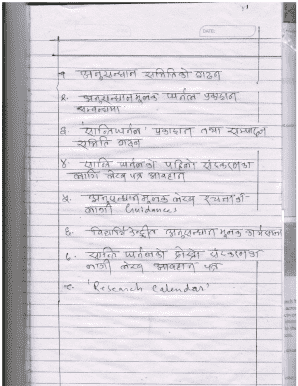 DATE
१. अनुसन्धान समितिको गठन
२. अनुसन्धानमूलक जर्नल प्रकाशन
सम्बन्धमा
३. प्रकाशन तथा सम्पादन
समिति गठन
४. जर्नलको पहिलो संस्करणका
लागि लेख पत्र आवहान
५. अनुसन्धानमूलक लेख रचनाको
लागी Guidances
६. अनुसन्धानमूलक कार्यशाला
७. जर्नलको दोस्रो संस्करणका
लागी लेख आवहान पत्र
८. 'Research Calendar'